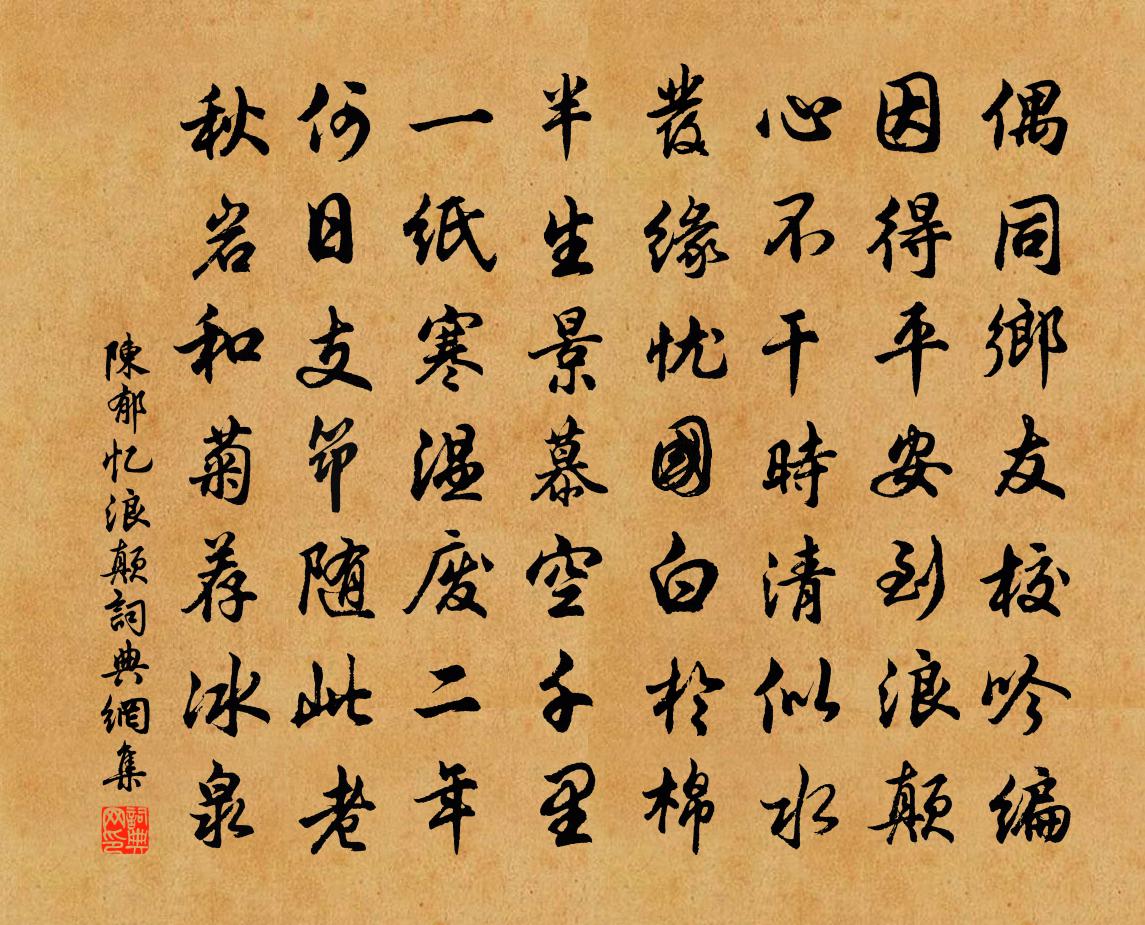 偶同鄉友校吟編
因得平安到浪颠
心不干時清似水
發緣忧國白於棉
半生景慕空千里
一纸寒温废二年
何日支節随此老
秋岩和菊荐冰泉
陳郁忆浪颠詞典網集
詞典网印